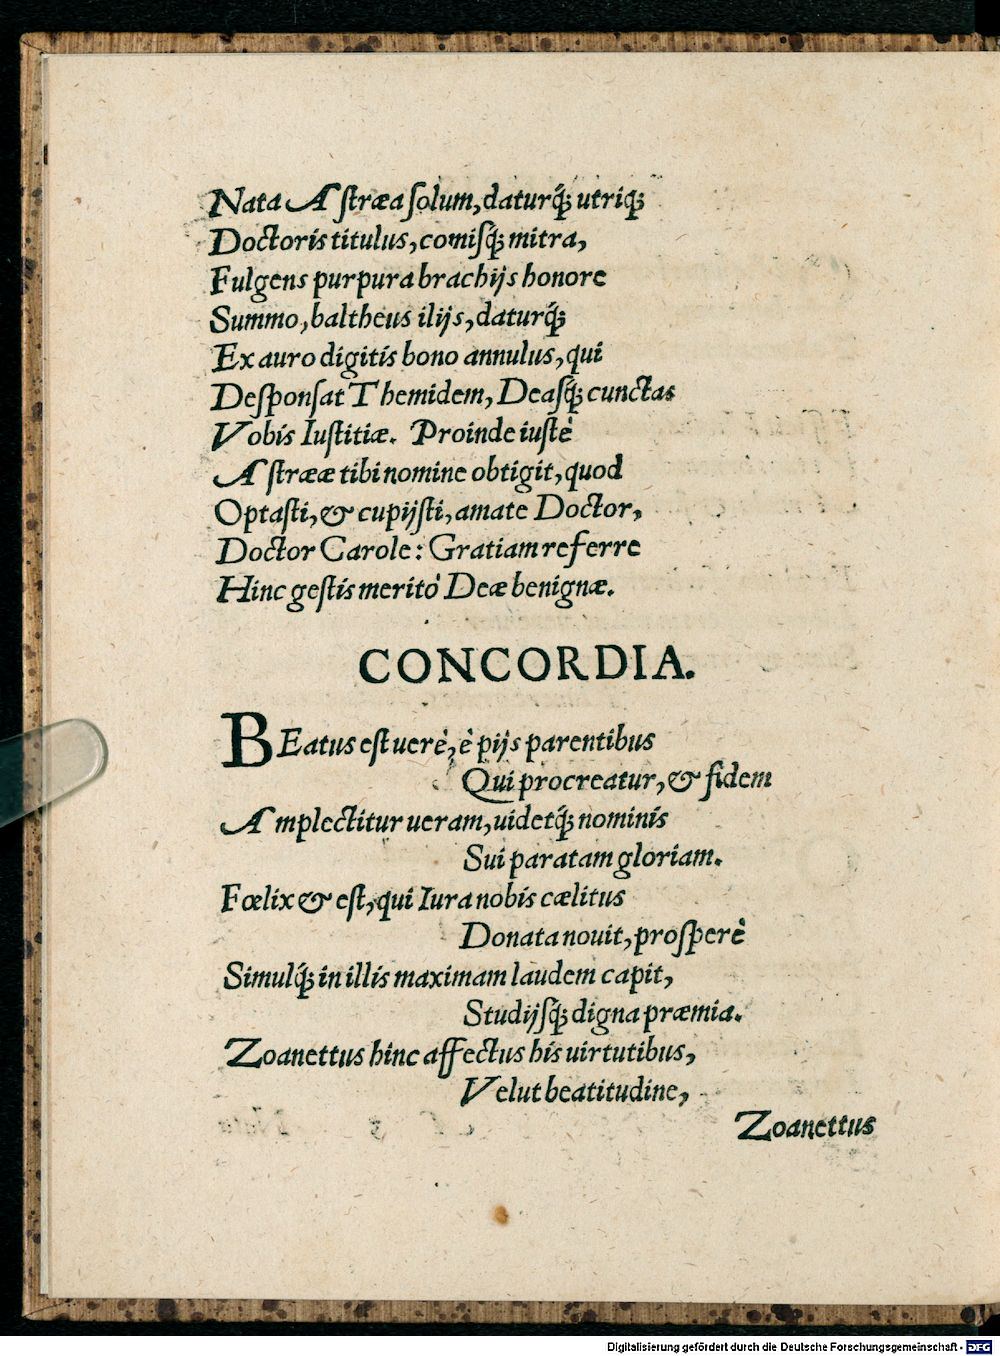 Nata Astræa solum, daturq́; utriq;
Doctoris titulus, comisq́; mitra,
Fulgens purpura brachijs honore
Summo, baltheus ilijs, daturq́;
Ex auro digitis bono annulus, qui
Desponsat Themidem, Deasq́; cunctas
Vobis Iustitiæ. Proinde iustè
Astrææ tibi nomine obtigit, quod
Optasti, & cupijsti, amate Doctor,
Doctor Carole: Gratiam referre
Hinc gestis meritò Deæ benignæ.
CONCORDIA.
BEatus est uerè, è pijs parentibus
Qui procreatur, & fidem
Amplectitur ueram, uidetq́; nominis
Sui paratam gloriam.
Fœlix & est, qui Iura nobis cælitus
Donata nouit, prosperè
Simulq́; in illis maximam laudem capit,
Studijsq́; digna præmia.
Zoanettus hinc affectus his uirtutibus,
Velut beatitudine,
Zoanettus
Digitalisierung gefördert durch die Deutsche Forschungsgemeinschaft - DFG